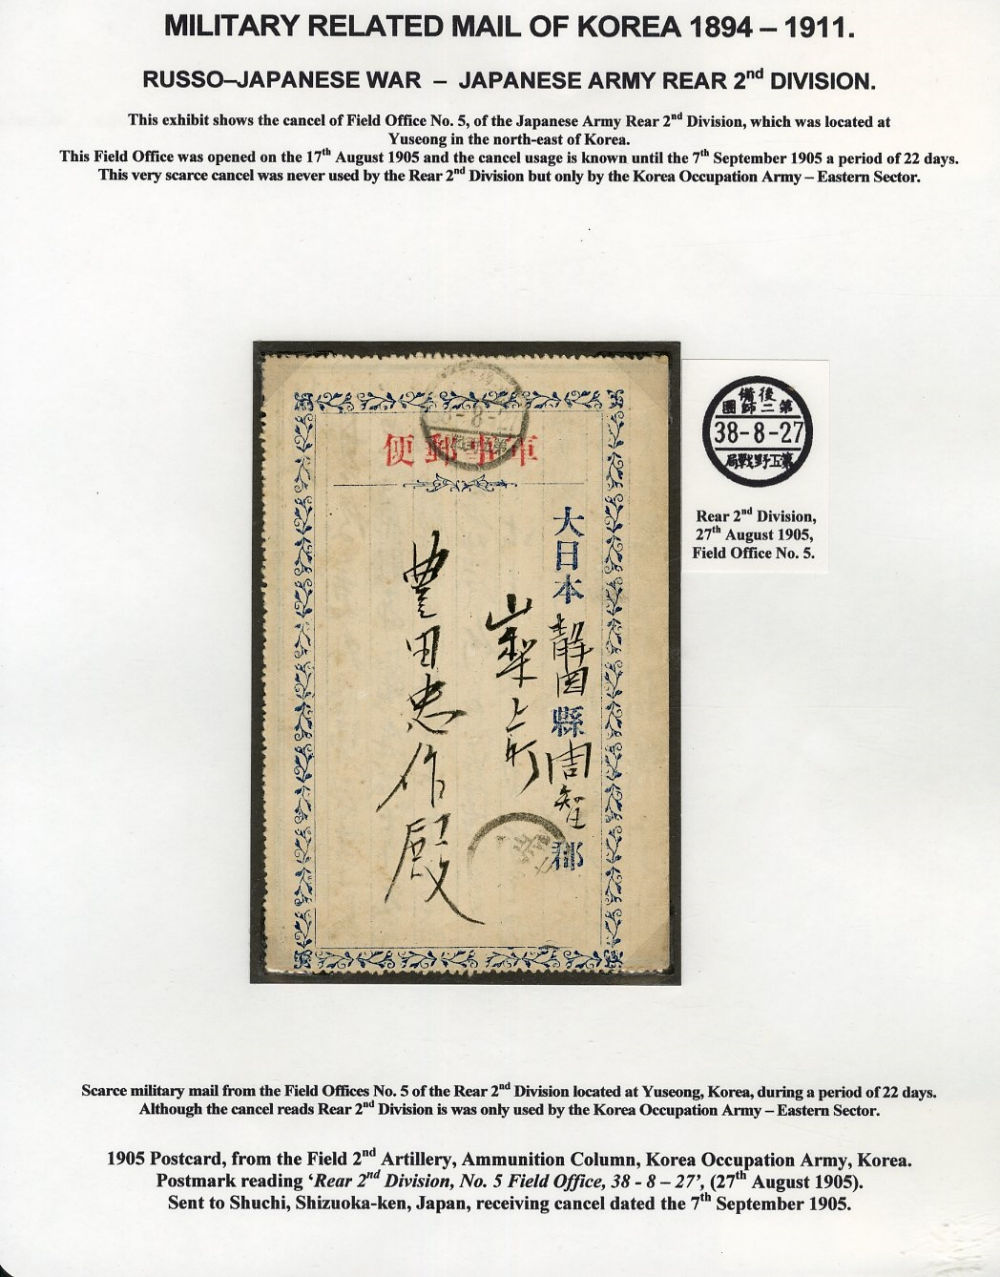 MILITARY RELATED MAIL OF KOREA 1894 – 1911.
RUSSO–JAPANESE WAR – JAPANESE ARMY REAR 2nd DIVISION.
This exhibit shows the cancel of Field Office No. 5, of the Japanese Army Rear 2nd Division, which was located at
Yuseong in the north-east of Korea.
This Field Office was opened on the 17th August 1905 and the cancel usage is known until the 7th September 1905 a period of 22 days.
This very scarce cancel was never used by the Rear 2nd Division but only by the Korea Occupation Army – Eastern Sector.
軍事郵便
大日本静岡縣周智郡
山梨上町
豊田忠作殿
後備
第二師團
38-8-27
第五野戰局
Rear 2nd Division,
27th August 1905,
Field Office No. 5.
Scarce military mail from the Field Offices No. 5 of the Rear 2nd Division located at Yuseong, Korea, during a period of 22 days.
Although the cancel reads Rear 2nd Division is was only used by the Korea Occupation Army – Eastern Sector.
1905 Postcard, from the Field 2nd Artillery, Ammunition Column, Korea Occupation Army, Korea.
Postmark reading ‘Rear 2nd Division, No. 5 Field Office, 38 - 8 – 27’, (27th August 1905).
Sent to Shuchi, Shizuoka-ken, Japan, receiving cancel dated the 7th September 1905.